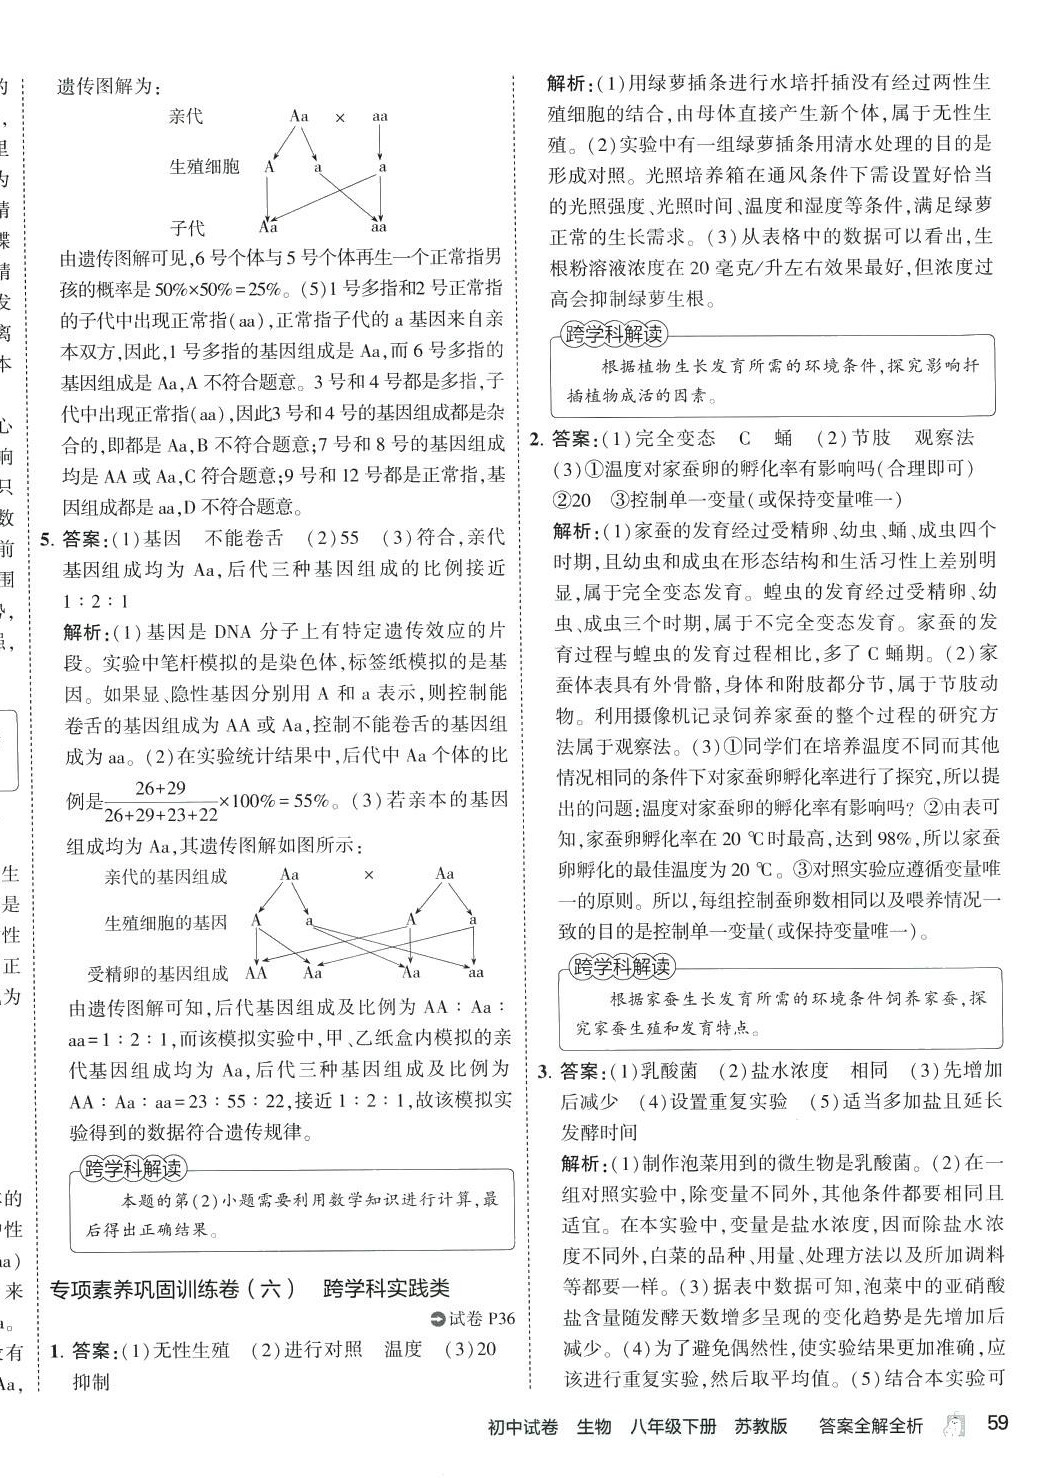 遗传图解为:
亲代 Aa × aa
生殖细胞 A a a
子代 Aa aa
由遗传图解可见,6号个体与5号个体再生一个正常指男
孩的概率是50%×50%=25%。(5)1号多指和2号正常指
的子代中出现正常指(aa),正常指子代的a基因来自亲
本双方,因此,1号多指的基因组成是Aa,而6号多指的
基因组成是Aa,A不符合题意。3号和4号都是多指,子
代中出现正常指(aa),因此3号和4号的基因组成都是杂
合的,即都是Aa,B不符合题意;7号和8号的基因组成
均是AA或Aa,C符合题意;9号和12号都是正常指,基
因组成都是aa,D不符合题意。
5. 答案:(1)基因 不能卷舌 (2)55 (3)符合,亲代
基因组成均为Aa,后代三种基因组成的比例接近
1:2:1
解析:(1)基因是DNA分子上有特定遗传效应的片
段。实验中笔杆模拟的是染色体,标签纸模拟的是基
因。如果显、隐性基因分别用A和a表示,则控制能
卷舌的基因组成为AA或Aa,控制不能卷舌的基因组
成为aa。(2)在实验统计结果中,后代中Aa个体的比
例是(26+29)/(26+29+23+22)×100%=55%。(3)若亲本的基因
组成均为Aa,其遗传图解如图所示:
亲代的基因组成 Aa × Aa
生殖细胞的基因 A a A a
受精卵的基因组成 AA Aa Aa aa
由遗传图解可知,后代基因组成及比例为AA:Aa:
aa=1:2:1,而该模拟实验中,甲、乙纸盒内模拟的亲
代基因组成均为Aa,后代三种基因组成及比例为
AA:Aa:aa=23:55:22,接近1:2:1,故该模拟实
验得到的数据符合遗传规律。
跨学科解读
本题的第(2)小题需要利用数学知识进行计算,最
后得出正确结果。
专项素养巩固训练卷(六) 跨学科实践类
试卷P36
1. 答案:(1)无性生殖 (2)进行对照 温度 (3)20
抑制
解析:(1)用绿萝插条进行水培扦插没有经过两性生
殖细胞的结合,由母体直接产生新个体,属于无性生
殖。(2)实验中有一组绿萝插条用清水处理的目的是
形成对照。光照培养箱在通风条件下需设置好恰当
的光照强度、光照时间、温度和湿度等条件,满足绿萝
正常的生长需求。(3)从表格中的数据可以看出,生
根粉溶液浓度在20毫克/升左右效果最好,但浓度过
高会抑制绿萝生根。
跨学科解读
根据植物生长发育所需的环境条件,探究影响扦
插植物成活的因素。
2. 答案:(1)完全变态 C 蛹 (2)节肢 观察法
(3)①温度对家蚕卵的孵化率有影响吗(合理即可)
②20 ③控制单一变量(或保持变量唯一)
解析:(1)家蚕的发育经过受精卵、幼虫、蛹、成虫四个
时期,且幼虫和成虫在形态结构和生活习性上差别明
显,属于完全变态发育。蝗虫的发育经过受精卵、幼
虫、成虫三个时期,属于不完全变态发育。家蚕的发
育过程与蝗虫的发育过程相比,多了C蛹期。(2)家
蚕体表具有外骨骼,身体和附肢都分节,属于节肢动
物。利用摄像机记录饲养家蚕的整个过程的研究方
法属于观察法。(3)①同学们在培养温度不同而其他
情况相同的条件下对家蚕卵孵化率进行了探究,所以提
出的问题:温度对家蚕卵的孵化率有影响吗?②由表可
知,家蚕卵孵化率在20℃时最高,达到98%,所以家蚕
卵孵化的最佳温度为20℃。③对照实验应遵循变量唯
一的原则。所以,每组控制蚕卵数相同以及喂养情况一
致的目的是控制单一变量(或保持变量唯一)。
跨学科解读
根据家蚕生长发育所需的环境条件饲养家蚕,探
究家蚕生殖和发育特点。
3. 答案:(1)乳酸菌 (2)盐水浓度 相同 (3)先增加
后减少 (4)设置重复实验 (5)适当多加盐且延长
发酵时间
解析:(1)制作泡菜用到的微生物是乳酸菌。(2)在一
组对照实验中,除变量不同外,其他条件都要相同且
适宜。在本实验中,变量是盐水浓度,因而除盐水浓
度不同外,白菜的品种、用量、处理方法以及所加调料
等都要一样。(3)据表中数据可知,泡菜中的亚硝酸
盐含量随发酵天数增多呈现的变化趋势是先增加后
减少。(4)为了避免偶然性,使实验结果更加准确,应
该进行重复实验,然后取平均值。(5)结合本实验可
初中试卷 生物 八年级下册 苏教版 答案全解全析 59